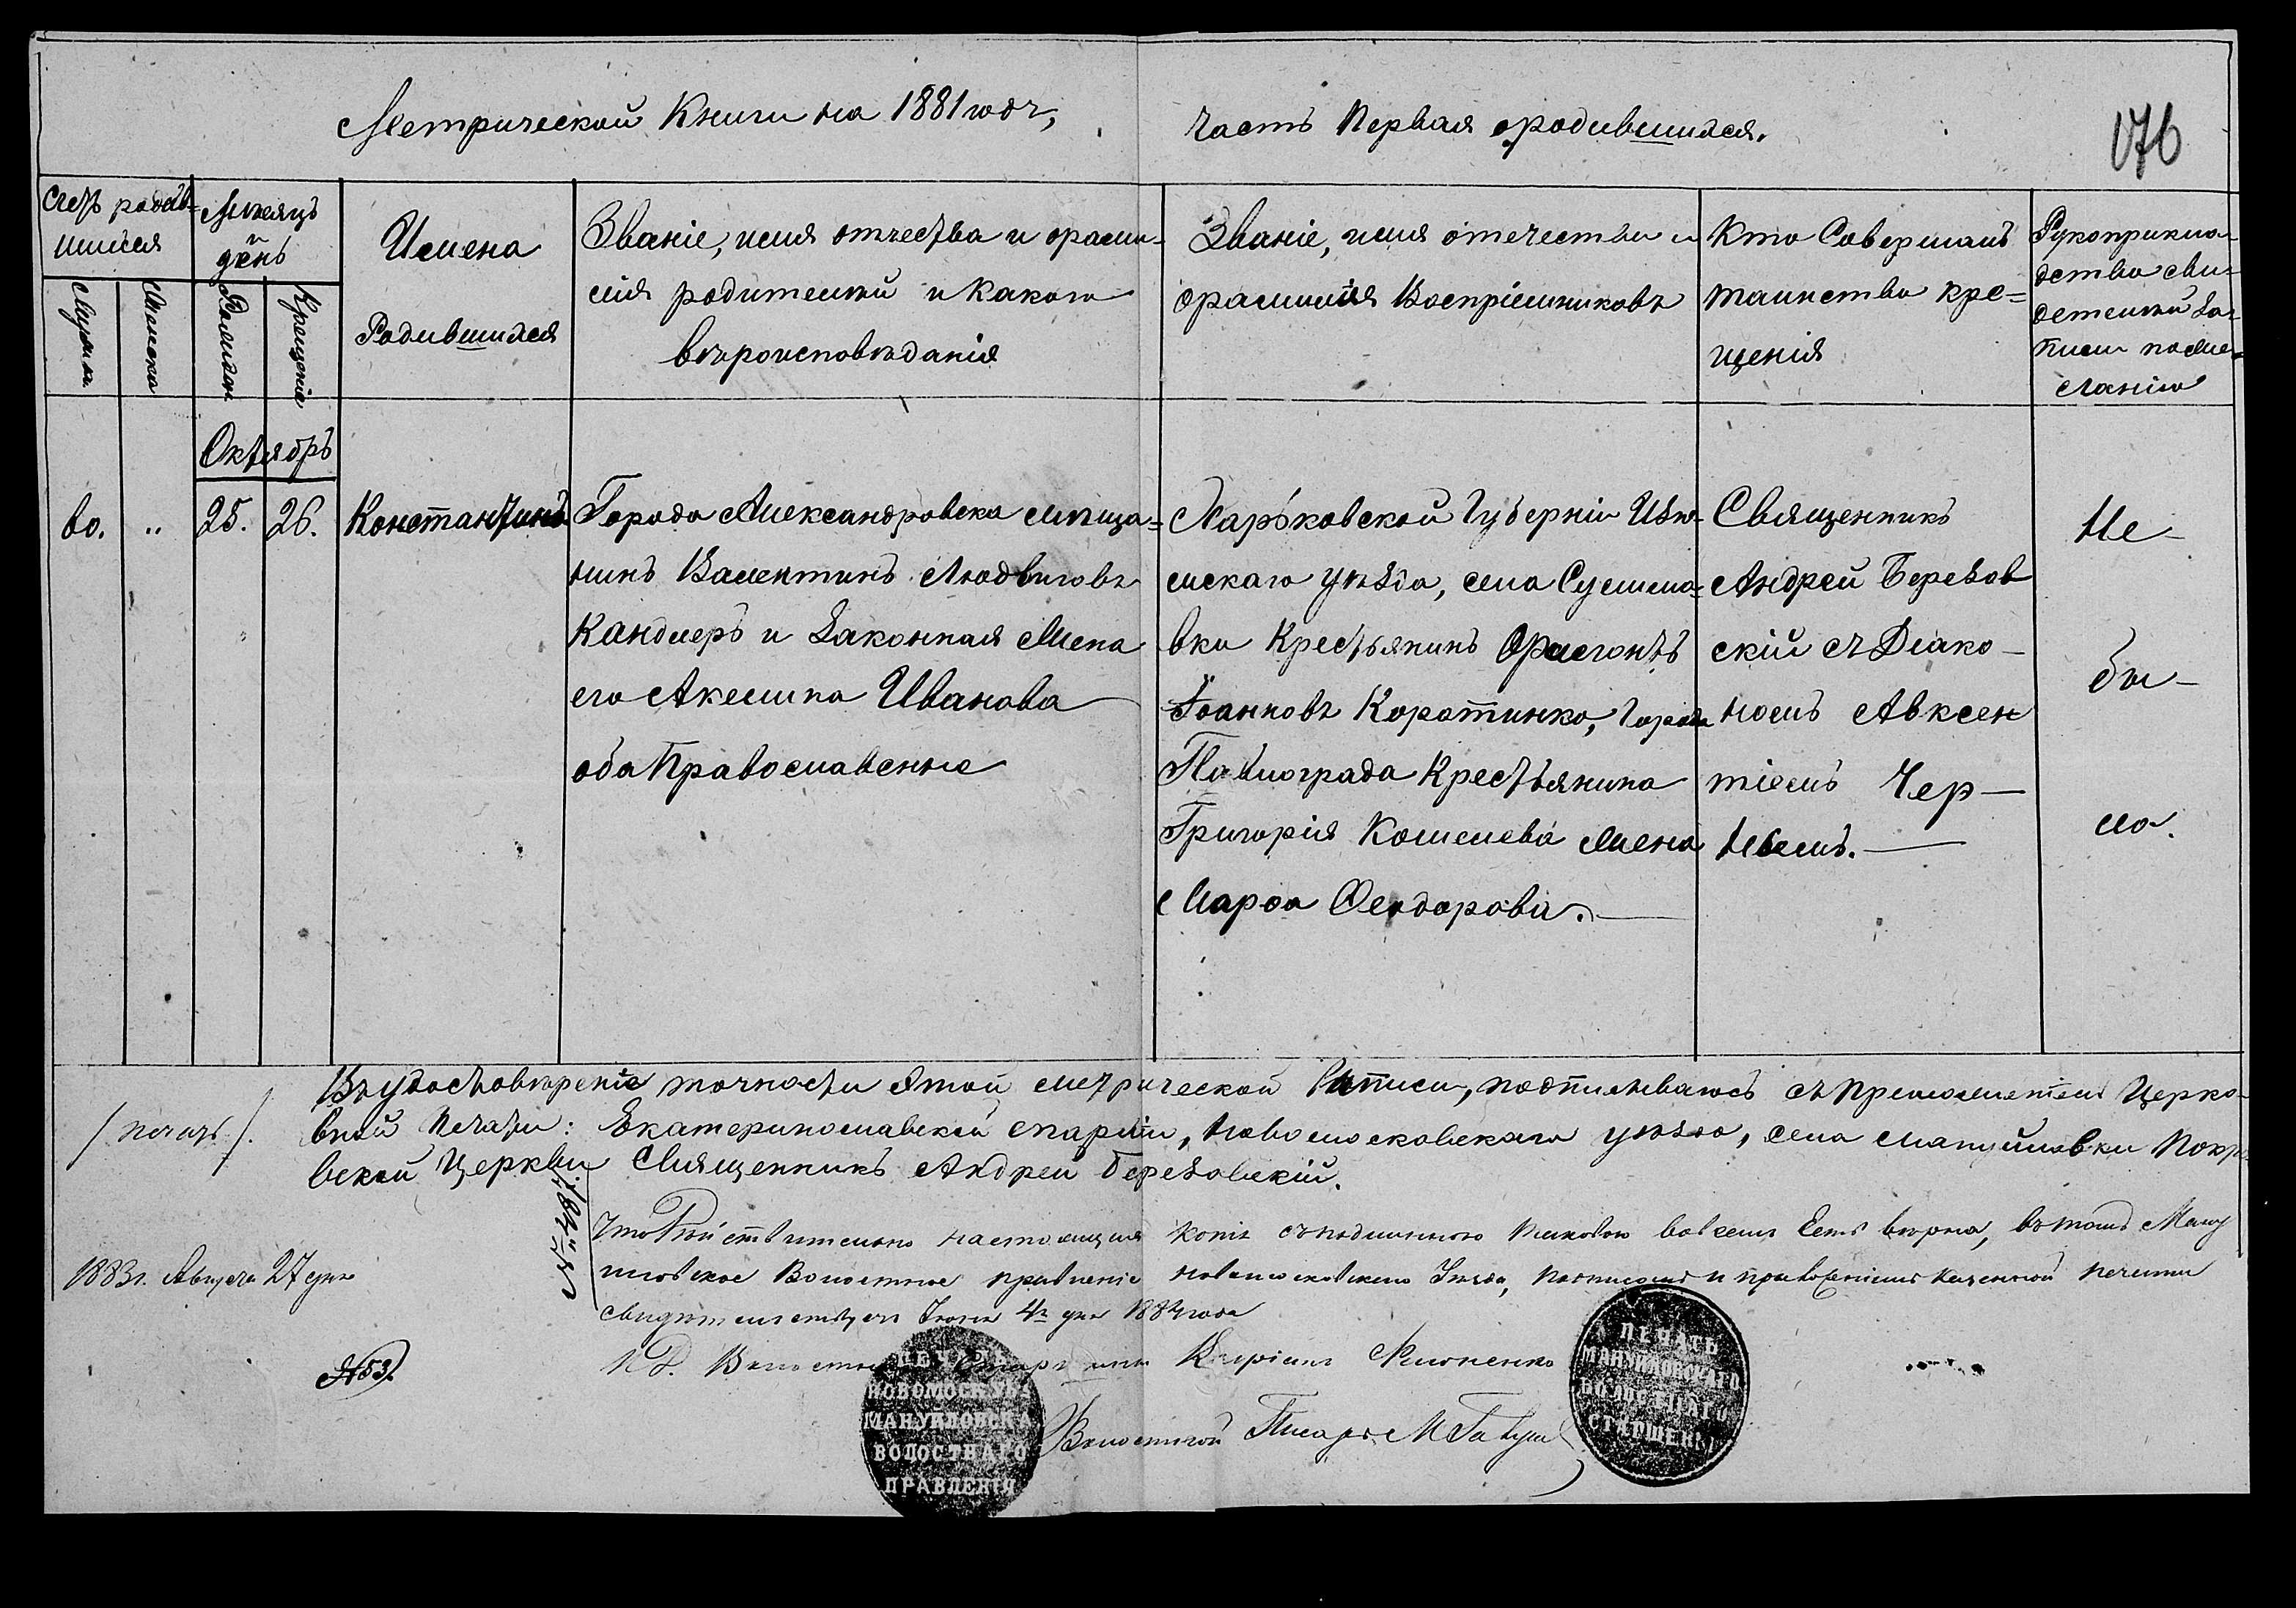 Метрической Книги на 1881 годъ,
часть Первая о родившихся.
176
Счетъ родив-
шихся
Мужска
Женска
Мѣсяцъ
и
день
Рожден.
Крещенія
Имена
Родившихся
Званіе, имя отчества и фрами-
лія родителей и какого
вѣроисповѣданія
Званіе, имя отечества и
фрамилія Воспріемниковъ
Кто Совершалъ
таинство кре=
щенія
Рукоприкла-
дство сви-
детелей За-
писи по же-
ланію
Октябрь
60.
"
25.
26.
Константинъ
Города Александровска мѣща=
нинъ Валентинъ Людвиговъ
Кандлеръ и Законная Жена
его Акелина Иванова
оба Православные
Харьковской Губерніи Изю-
мскаго уѣзда, села Сушма=
вки Крестьянинъ Фрлегонтъ
Іоанновъ Коротинко, Города
Павлограда Крестьянина
Григорія Кошелева Жена
Марфа Феодорова.
Священникъ
Андрей Березов
скій съ Діако-
номъ Авксен
тіемъ Чер-
невымъ.
Не-
бы-
ло.
/печать/.
Въ удостовѣреніе точности этой метрической Записи, подписываюсь съ приложеніемъ Церко-
вной Печати: Екатеринославской епархіи, Новомосковскаго уѣзда, села Мануйловки Покро
вской Церкви Священникъ Андрей Березовскій.
1883г. Августа 27 дня
№ 53
Что Дѣйствительно настоящая копія съ подлинною таковою во всемъ Есть вѣрна, въ томъ Мануй
ловское Волостное правленіе Новомосковскаго Уѣзда, подписомъ и приложеніемъ казенной печати
свидѣтельствуетъ Іюня 4го дня 1884 года
И.Д. Волостнаго Старшины
Волостной Писарь М Гавуш
ПЕЧАТЬ
НОВОМОСКОВ.
МАНУЙЛОВСКА
ВОЛОСТНАГО
ПРАВЛЕНІЯ
ПЕЧАТЬ
МАНУЙЛОВСКАГО
ВОЛОСТНАГО
СТАРШИНЫ